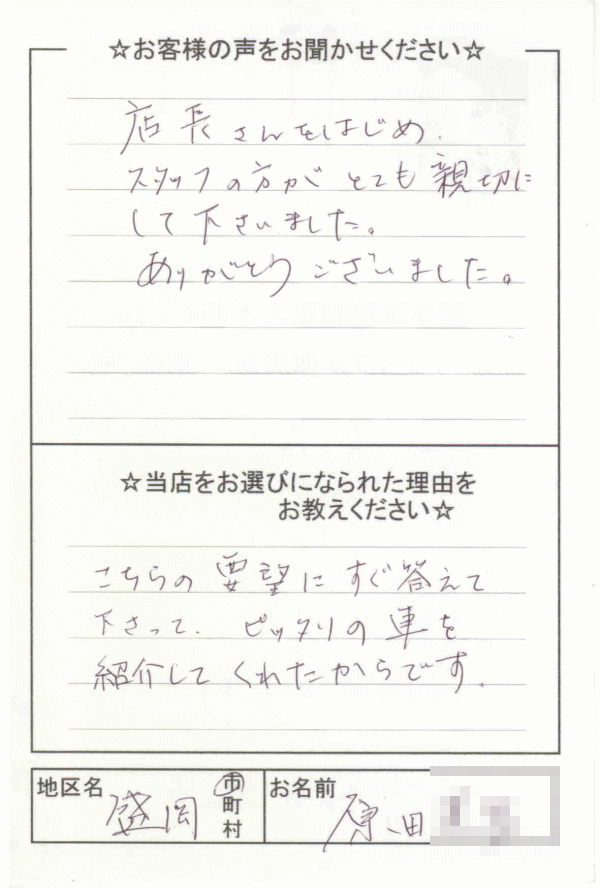 ☆お客様の声をお聞かせください☆
店長さんをはじめ、
スタッフの方がとても親切に
して下さいました。
ありがとうございました。
☆当店をお選びになられた理由を
お教えください☆
こちらの要望にすぐ答えて
下さって、ピッタリの車を
紹介してくれたからです。
地区名 盛岡 市町村 お名前 原田